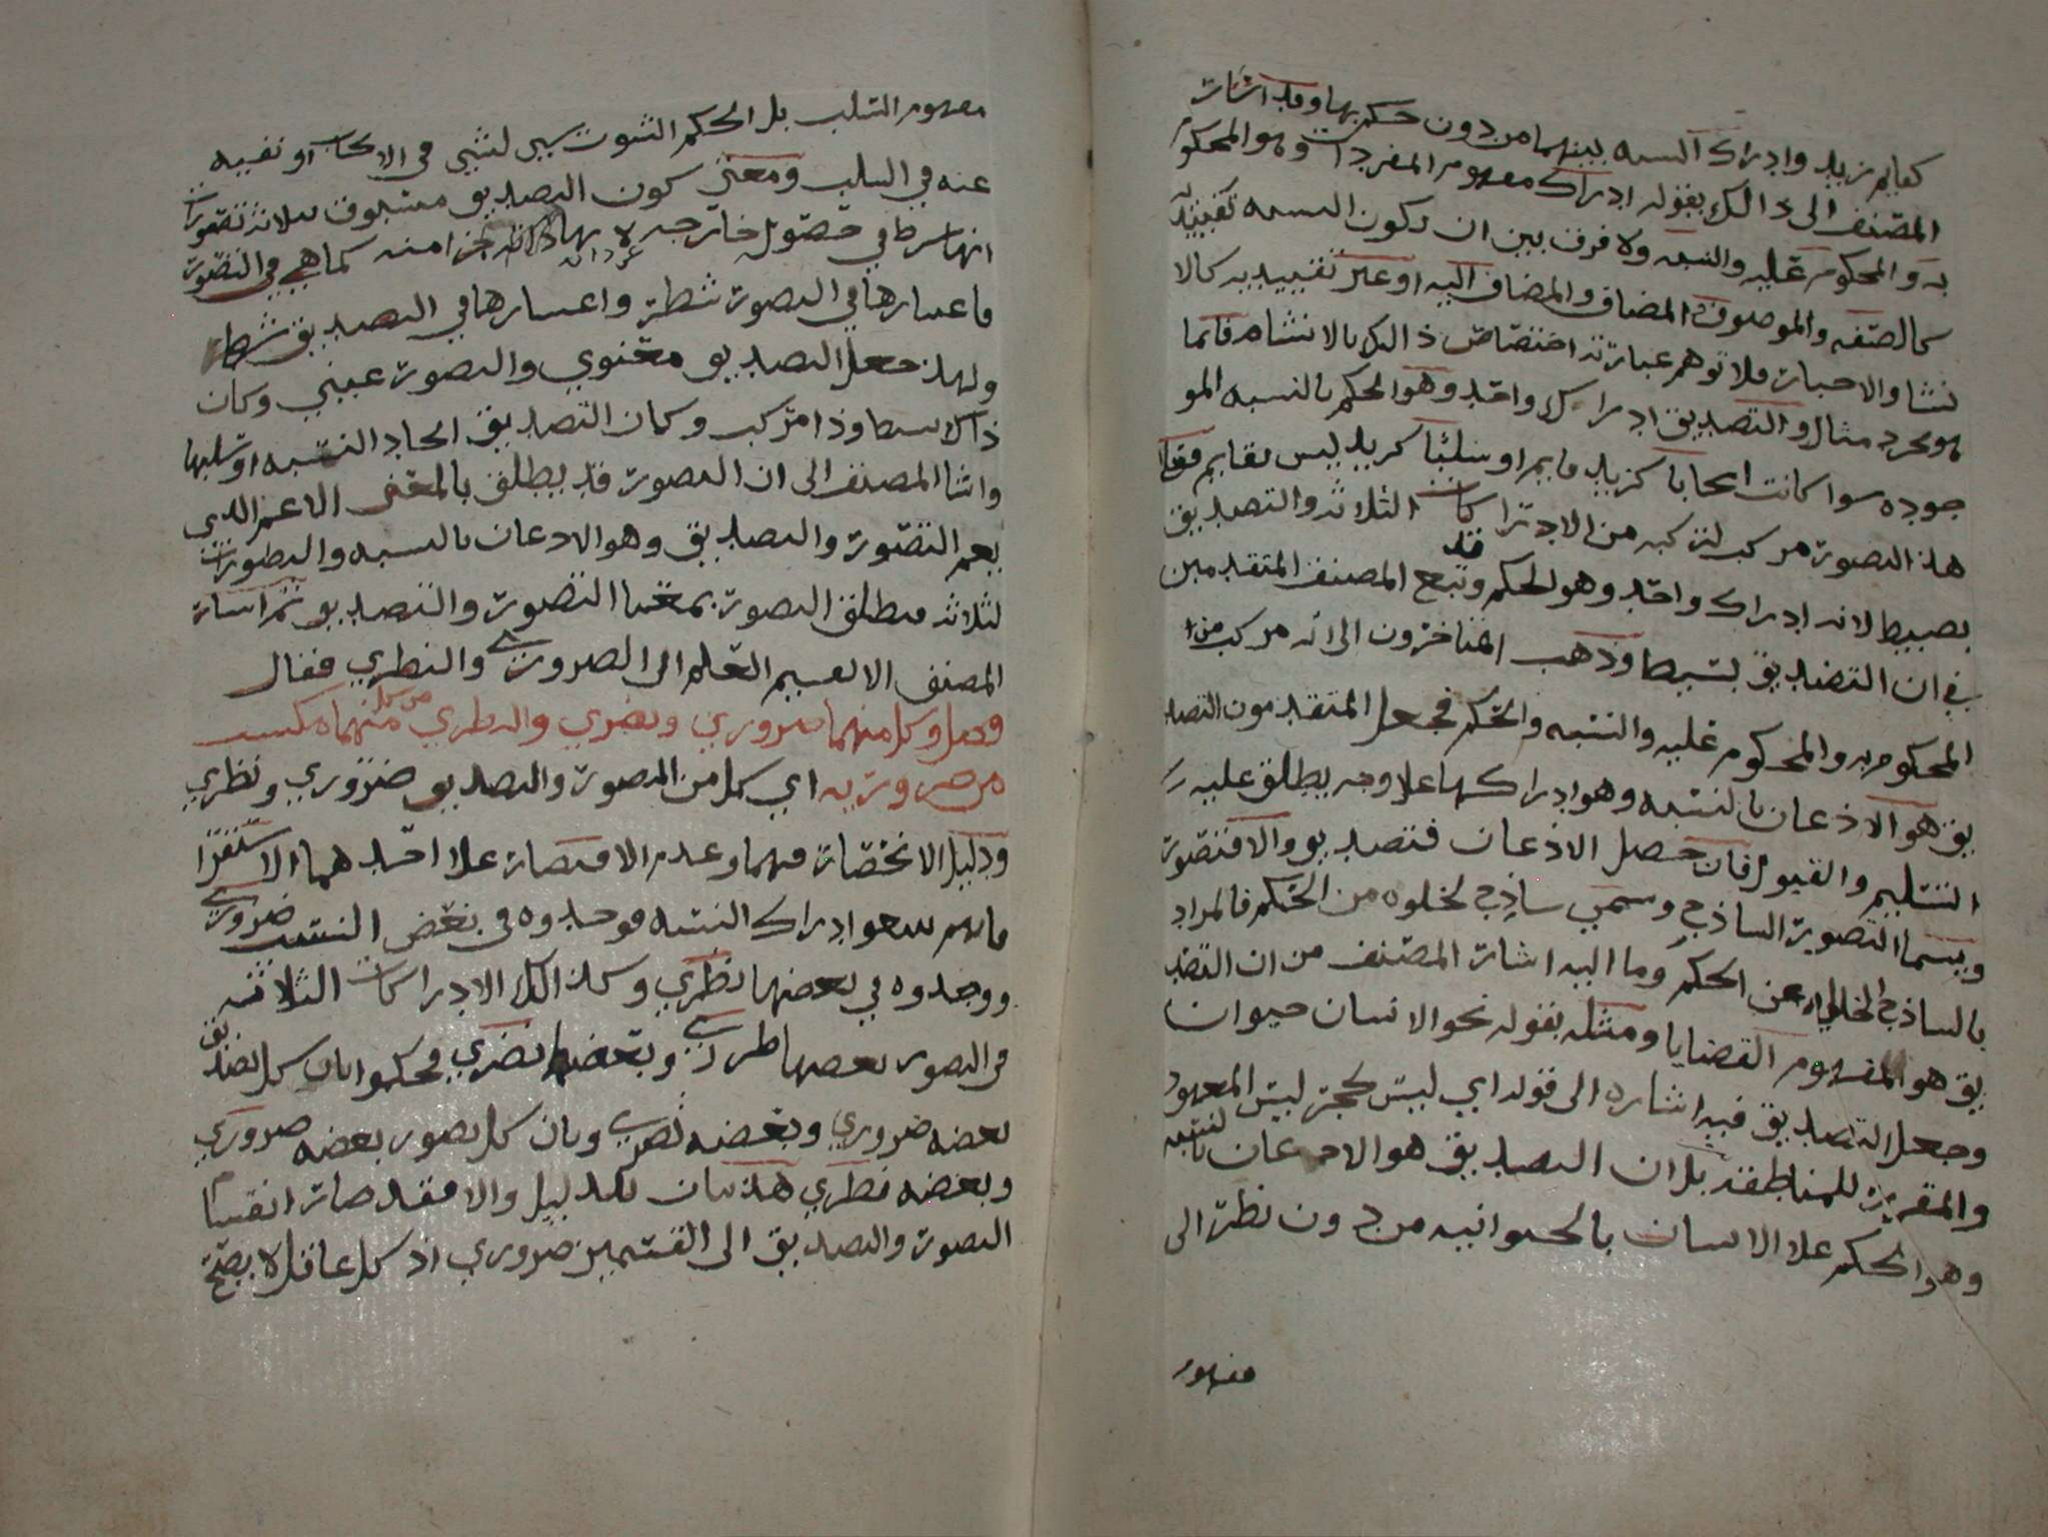 كقايم زيد وادراك النسبه بينهما من دون حكم بها وقد اشار
المصنف الى ذالك بقوله ادراك مفهوم المفردات وهو المحكوم
به والمحكوم عليه والنسبه ولا فرق بين ان يكون النسبه تقييديه
كالصفه والموصوف والمضاف والمضاف اليه او غير تقييديه كالا
نشا والاخبار فلا توهم عبارته اختصاص ذالك بالانشاه فانما
هو مجرد مثال والتصديق ادراك واحد وهو الحكم بالنسبه المو
جوده سوا كانت ايجابا كزيد قايم او سلبا كزيد ليس بقايم فعلا
هذا التصور مركب لتركبه من الادراكات الثلاثه والتصديق
بصيط لانه ادراك واحد وهو لحكم وقد تبع المصنف المتقدمين
في ان التصديق بسيطا وذهب المتاخرون الى انه مركب من
المحكوم به والمحكوم عليه والنسبه والحكم فجعل المتقدمون التصد
يق هو الاذعان بالنسبه وهو ادراكها علا وجه يطلق عليه
التسليم والقبول فان حصل الاذعان فتصديق والا فتصور
ويسما التصور الساذج وسمي ساذج لخلوه من الحكم فالمراد
بالساذج الخالي عن الحكم وما اليه اشار المصنف من ان التصد
يق هو المفهوم القضايا ومثله بقوله نحو الانسان حيوان
وجعل التصديق فيه اشاره الى قوله اي ليس بحجر ليس المعهود
والمقرر للمناطقه بل ان التصديق هو الاذعان بالنسبه
وهو الحكم علا الانسان بالحيوانيه من دون نظر الى
مفهوم
مفهوم السلب بل الحكم الثبوت شي لشي في الايجاب او نفيه
عنه في السلب ومعنى كون التصديق مسبوق بثلاثه تصورات
انها شرط في حصول خارجه لا بها جزا منه كما هي في التصور
فاعتبارها في التصور شطر واعتبارها في التصديق شطر
ولهذ جعل التصديق معنوي والتصور عيني وكان
ذاك بسيطا وذا مركب وكان التصديق ايجاد النسبه او سلبها
واشا المصنف الى ان التصور قد يطلق بالمعنى الاعم الذي
يعم التصور والتصديق وهو الاذعان بالنسبه والتصورات
لثلاثه فيطلق التصور بمعنا التصور والتصديق ثم اشار
المصنف الا تقسيم العلم الى الضروري والنظري فقال
فصل وكل منهما ضروري ونضري والنظري من كل منهما مكتسب
من ضروريه اي كل من التصور والتصديق ضروري ونظري
ودليل الانحصار فيهما وعدم الاقتصار علا احد هما الاستقرا
فانهم تتبعوا ادراك النسبه فوجدوه في بعض النسب ضروري
ووجدوه في بعضها نظري وكذالك الادراكات الثلاثه
في التصور بعضها ضروري وبعضها نضري فحكموا بان كل تصديق
بعضه ضروري وبعضه نضري وبان كل تصور بعضه ضروري
وبعضه نظري هذ بيان للدليل والا فقد صار انقسام
التصور والتصديق الى القسمين ضروري اذ كل عاقل لا يصح